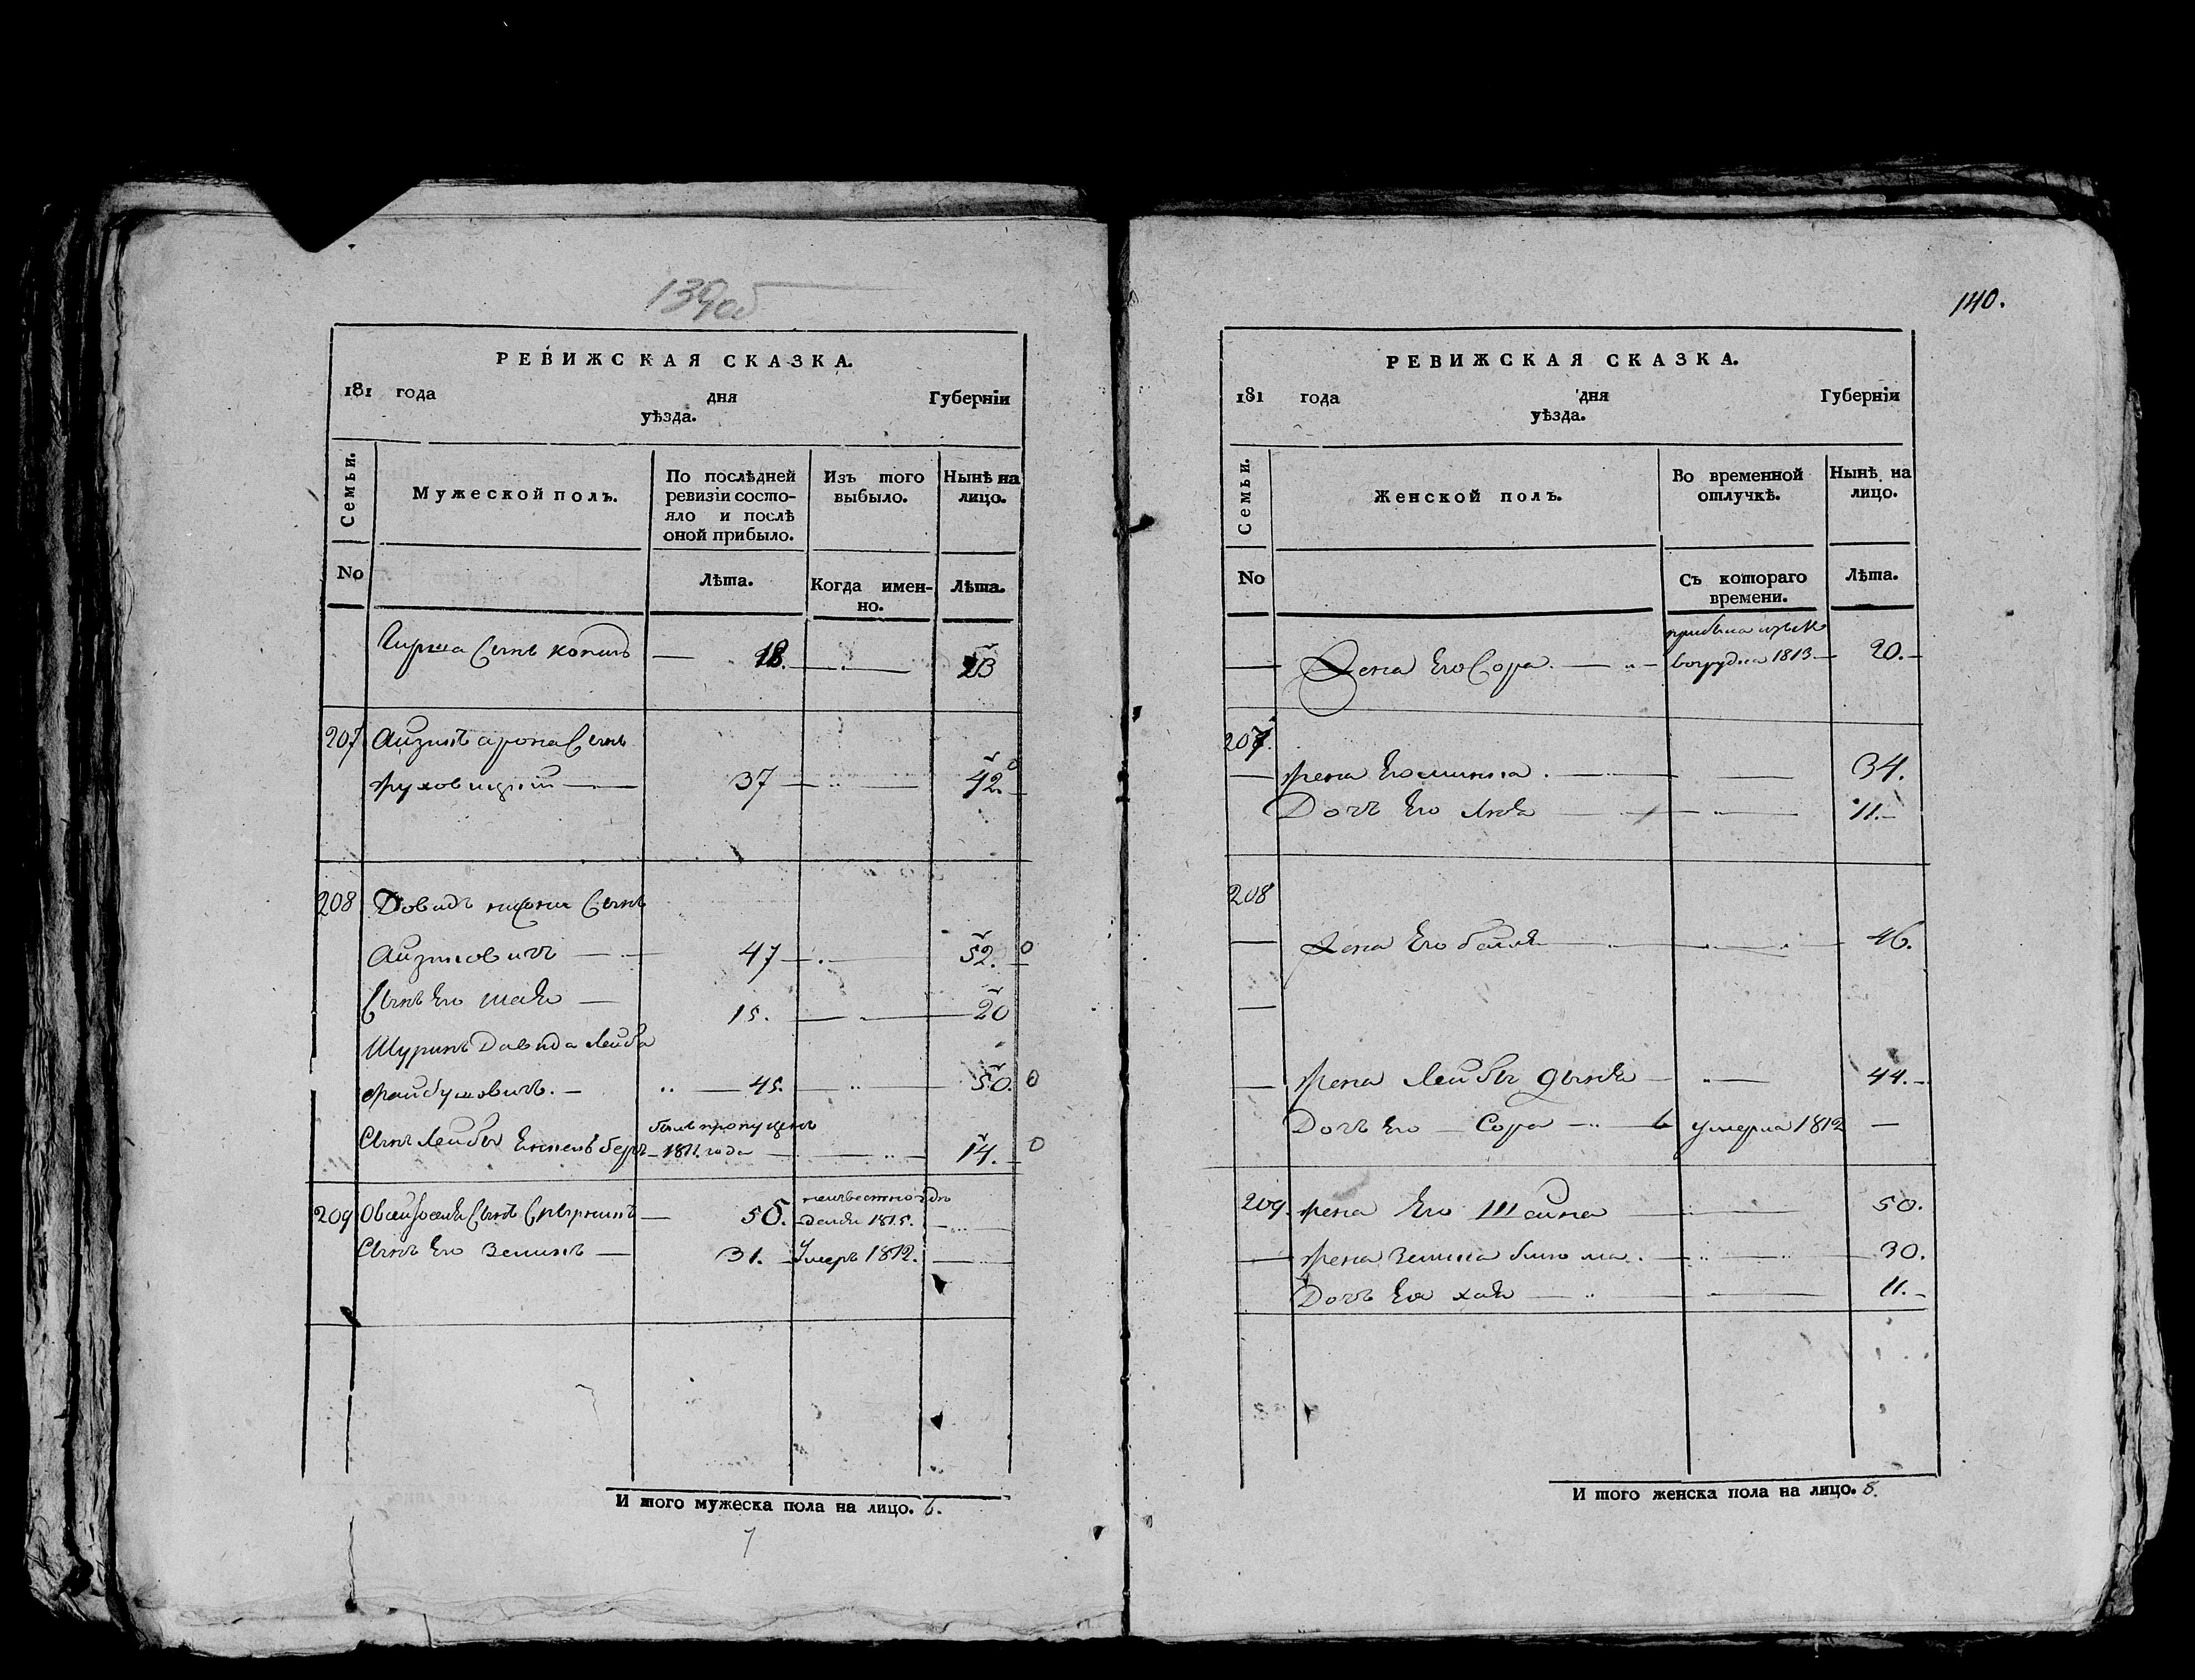 139об
РЕВИЖСКАЯ СКАЗКА.
181 года дня Губернїи
уѣзда.
Семьи. Мужеской полъ. По послѣдней ревизїи состояло и послѣ оной прибыло. Изъ того выбыло. Нынѣ на лицо.
No Лѣта. Когда именно. Лѣта.
Гирша Сынъ 18. 23
207 Айзикъ арона Сынъ
37 42.
208 Довидъ Сынъ
Айзиковичъ 47 52. 0
Сынъ Его шая 15. 20
Шуринъ Давида Лейба
Файбушовичъ. 45. 50. 0
Сынъ Лейбы берь былъ пропущенъ
1811. года 14. 0
209 Сынъ 50. неизвестно
1815.
Сынъ Его Зелигъ 31. Умеръ 1812.
И того мужеска пола на лицо. 6.
7
140.
РЕВИЖСКАЯ СКАЗКА.
181 года дня Губернїи
уѣзда.
Семьи. Женской полъ. Во временной отлучкѣ. Нынѣ на лицо.
No Съ котораго времени. Лѣта.
прибыла
Жена Его Сора. 1813 20.
207.
Жена Его 34.
Дочь Его 11.
208
Жена Его бейля 46.
Жена Лейбы 44.
Дочь Его Сора умерла 1812
209. Жена Его Шейна 50.
Жена Зелига блюма. 30.
Дочь Ея хая 11.
И того женска пола на лицо. 8.